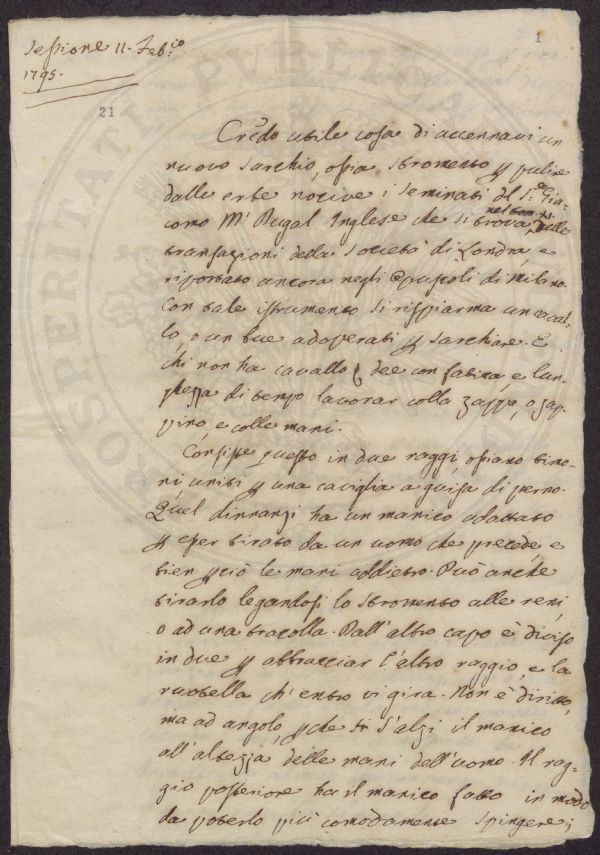 Sessione 11. Feb:io
1795.
1
21
Credo utile cosa di accennavi un
nuovo sarchio, ossia stromento p pulire
dalle erbe nocive i seminati del S:r Gia-
como Mr Bugal Inglese che si trova nel tom. XI. nelle
transazioni della Società di Londra, e
riportato ancora negli Opuscoli di Milano.
Con tale istrumento si risparmia un caval-
lo, o un bue adoperati p sarchiare. E
chi non ha cavallo dee con fatica, e lun-
ghezza di tempo lavorar colla zappa, o zap-
pino, e colle mani.
Consiste questo in due raggi, ossiano timo-
ni uniti p una caviglia a guisa di perno.
Quel dinnanzi ha un manico adattato
p esser tirato da un uomo che precede, e
tien pciò le mani addietro. Può anche
tirarlo legandosi lo stromento alle reni,
o ad una tracolla. Dall'altro capo è diviso
in due p abbracciar l'altro raggio, e la
ruotella ch'entro vi gira. Non è diritto,
ma ad angolo, pche s'alzi il manico
all'altezza delle mani dell'uomo. Il rag-
gio posteriore ha il manico fatto in modo
da poterlo più comodamente spingere;
PROSPERITATI PVBLICAE